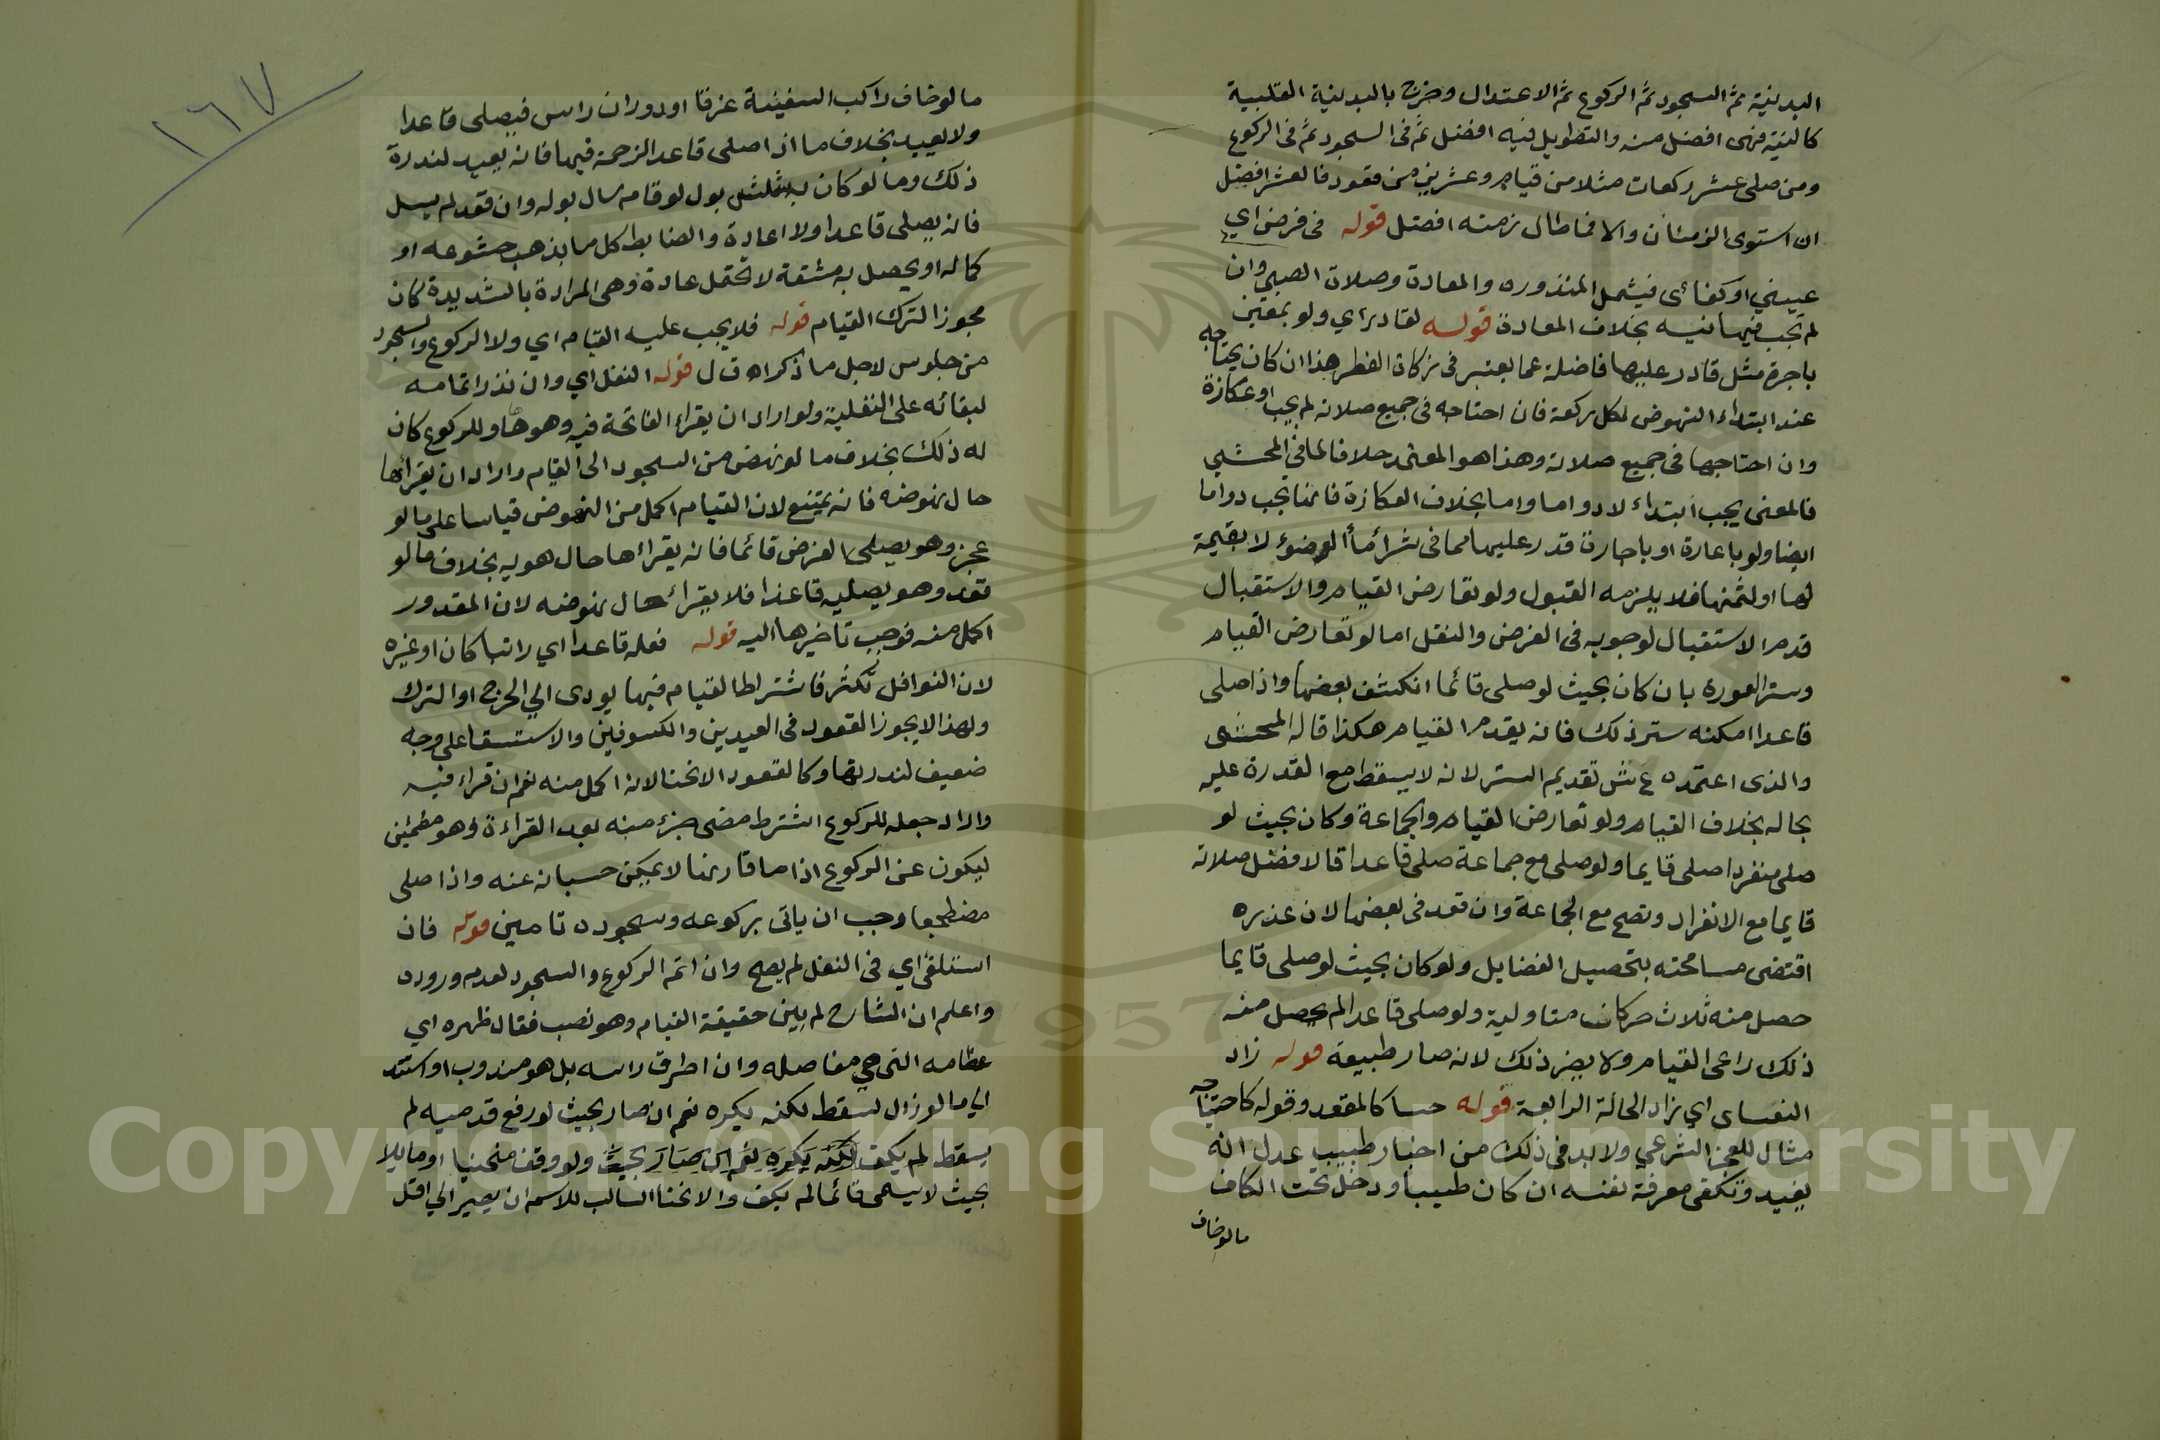 البدنية ثم السجود ثم الركوع ثم الاعتدال وخرج بالبدنية القلبية
كالنية فهى افضل منه والتطويل فيه افضل ثم فى السجود ثم فى الركوع
ومن صلى عشر ركعات مثلا من قيام وعشرين من قعود فالعشر افضل
ان استوى الزمنان والا فما طال زمنه افضل قوله فى فرض اي
عيينى او كفائى فيشمل المنذوره والمعادة وصلاة الصبي وان
لم تجب فيهما نيه بخلاف المعادة قوله لقادر اي ولو بمعين
باجرة مثل قادر عليها فاضلة عما يعتبر فى زكاة الفطر هذا ان كان يحتاجه
عند ابتداء النهوض لكل ركعة فان احتاجه فى جميع صلاته لم يجب او عكازة
وان احتاجها فى جميع صلاته وهذا هو المعتمد خلافا لما فى المحشي
فالمعنى يجب ابتداء لا دواما واما بخلاف العكازة فانها تجب دواما
ايضا ولو باعارة او باجارة قدر عليها مما فى شراء ماء الوضوء لا بقيمة
لها او لثمنها فلا يلزمه القبول ولو تعارض القيام والاستقبال
قدم الاستقبال لوجوبه فى الفرض والنفل اما لو تعارض القيام
وستر العورة بان كان بحيث لو صلى قائما انكشف بعضها واذا صلى
قاعدا امكنه ستر ذلك فانه يقدم القيام هكذا قاله المحشى
والذى اعتمده ع ش تقديم الستر لانه لا يسقط مع القدرة عليه
بحاله بخلاف القيام ولو تعارض القيام والجماعة وكان بحيث لو
صلى منفردا صلى قايما ولو صلى مع جماعة صلى قاعدا فالافضل صلاته
قايما مع الانفراد وتصح مع الجماعة وان قعد فى بعضها لان عذره
اقتضى مسامحته بتحصيل الفضايل ولو كان بحيث لو صلى قايما
حصل منه ثلاث حركات متاولية ولو صلى قاعدا لم يحصل منه
ذلك راعى القيام ولا يضر ذلك لانه صار طبيعة قوله زاد
النفساى اي زاد الحالة الرابعة قوله حسا كالمقعد وقوله كاحتياجه
مثال للعجز الشرعي ولا بد فى ذلك من اخبار طبيب عدل انه
يفيد وتكفى معرفة نفسه ان كان طبيبا ودخل تحت الكاف
مالوخاف
١٦٧
مالوخاف راكب السفينة غرقا او دوران راس فيصلى قاعدا
ولا يعيد بخلاف ما اذا صلى قاعدا لزحمة فيها فانه يعيد لندرة
ذلك ومالو كان به سلس بول لو قام سال بوله وان قعد لم يسل
فانه يصلى قاعدا ولا اعادة والضابط كل ما يذهب خشوعه او
كماله او يحصل به مشقة لا تحتمل عادة وهى المرادة بالشديدة كان
مجوزا لترك القيام قوله فلا يجب عليه القيام اي ولا الركوع والسجود
من جلوس لاجل ما ذكر اه ق ل قوله النفل اي وان نذر اتمامه
لبقائه على النفلية ولو اراد ان يقراء الفاتحة فيه وهو هاو للركوع كان
له ذلك بخلاف مالو نهض من السجود الى القيام واراد ان يقرائها
حال نهوضه فانه يمتنع لان القيام اكمل من النهوض قياسا على مالو
عجز وهو يصلى الفرض قائما فانه يقراءها حال هويه بخلاف مالو
قعد وهو يصليه قاعدا فلا يقراء حال نهوضه لان المقدور
اكمل منه فوجب تاخيرها اليه قوله فعله قاعدا اي راتبا كان او غيره
لان النوافل تكثر فاشتراط القيام فيها يودى الي الحرج او الترك
ولهذا لا يجوز القعود فى العيدين والكسوفين والاستسقا على وجه
ضعيف لندرتها وكالقعود الانحنا لانه اكمل منه نعم ان قراء فيه
واراد جعله للركوع اشترط مضى جزء منه بعد القراءة وهو مطمئن
ليكون عن الركوع اذا ما قارنها لا يمكن حسبانه عنه واذا صلى
مضطجعا وجب ان ياتى بركوعه وسجوده تامين قوله فان
استلقى اي فى النفل لم يصح وان اتم الركوع والسجود لعدم وروده
واعلم ان الشارح لم يبين حقيقة القيام وهو نصب فقال ظهره اي
عظامه التى هي مفاصله وان اطرق راسه بل هو مندوب او استند
الي مالو زال لسقط لكنه يكره نعم ان صار بحيث لو رفع قدميه لم
يسقط لم يكف لكنه يكره نعم ان صار بحيث ولو وقف منحنيا او مايلا
بحيث لا يسمى قائما لم يكف والانحنا السالب للاسم ان يصير الي اقل